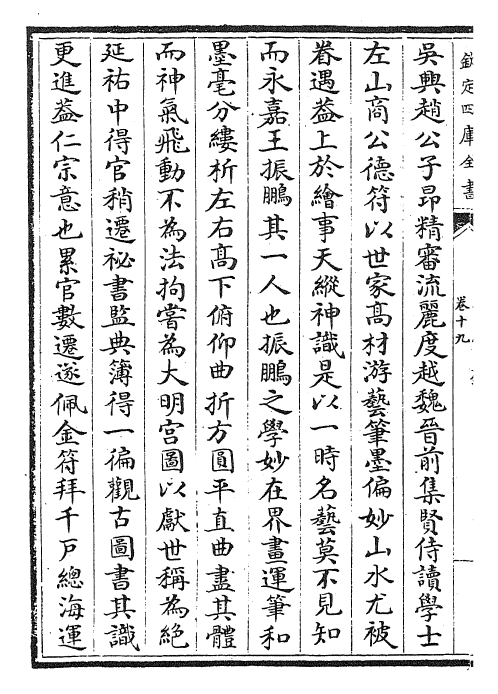 欽定四庫全書
卷十九
吳興趙公子昂精審流麗度越魏晉前集賢侍讀學士
左山商公德符以世家髙材游藝筆墨偏妙山水尤被
眷遇葢上於繪事天縱神識是以一時名藝莫不見知
而永嘉王振鵬其一人也振鵬之學妙在界畫運筆和
墨毫分縷析左右髙下俯仰曲折方圓平直曲盡其體
而神氣飛動不為法拘嘗為大明宫圖以獻世稱為絶
延祐中得官稍遷祕書監典簿得一徧觀古圖書其識
更進葢仁宗意也累官數遷遂佩金符拜千戸總海運